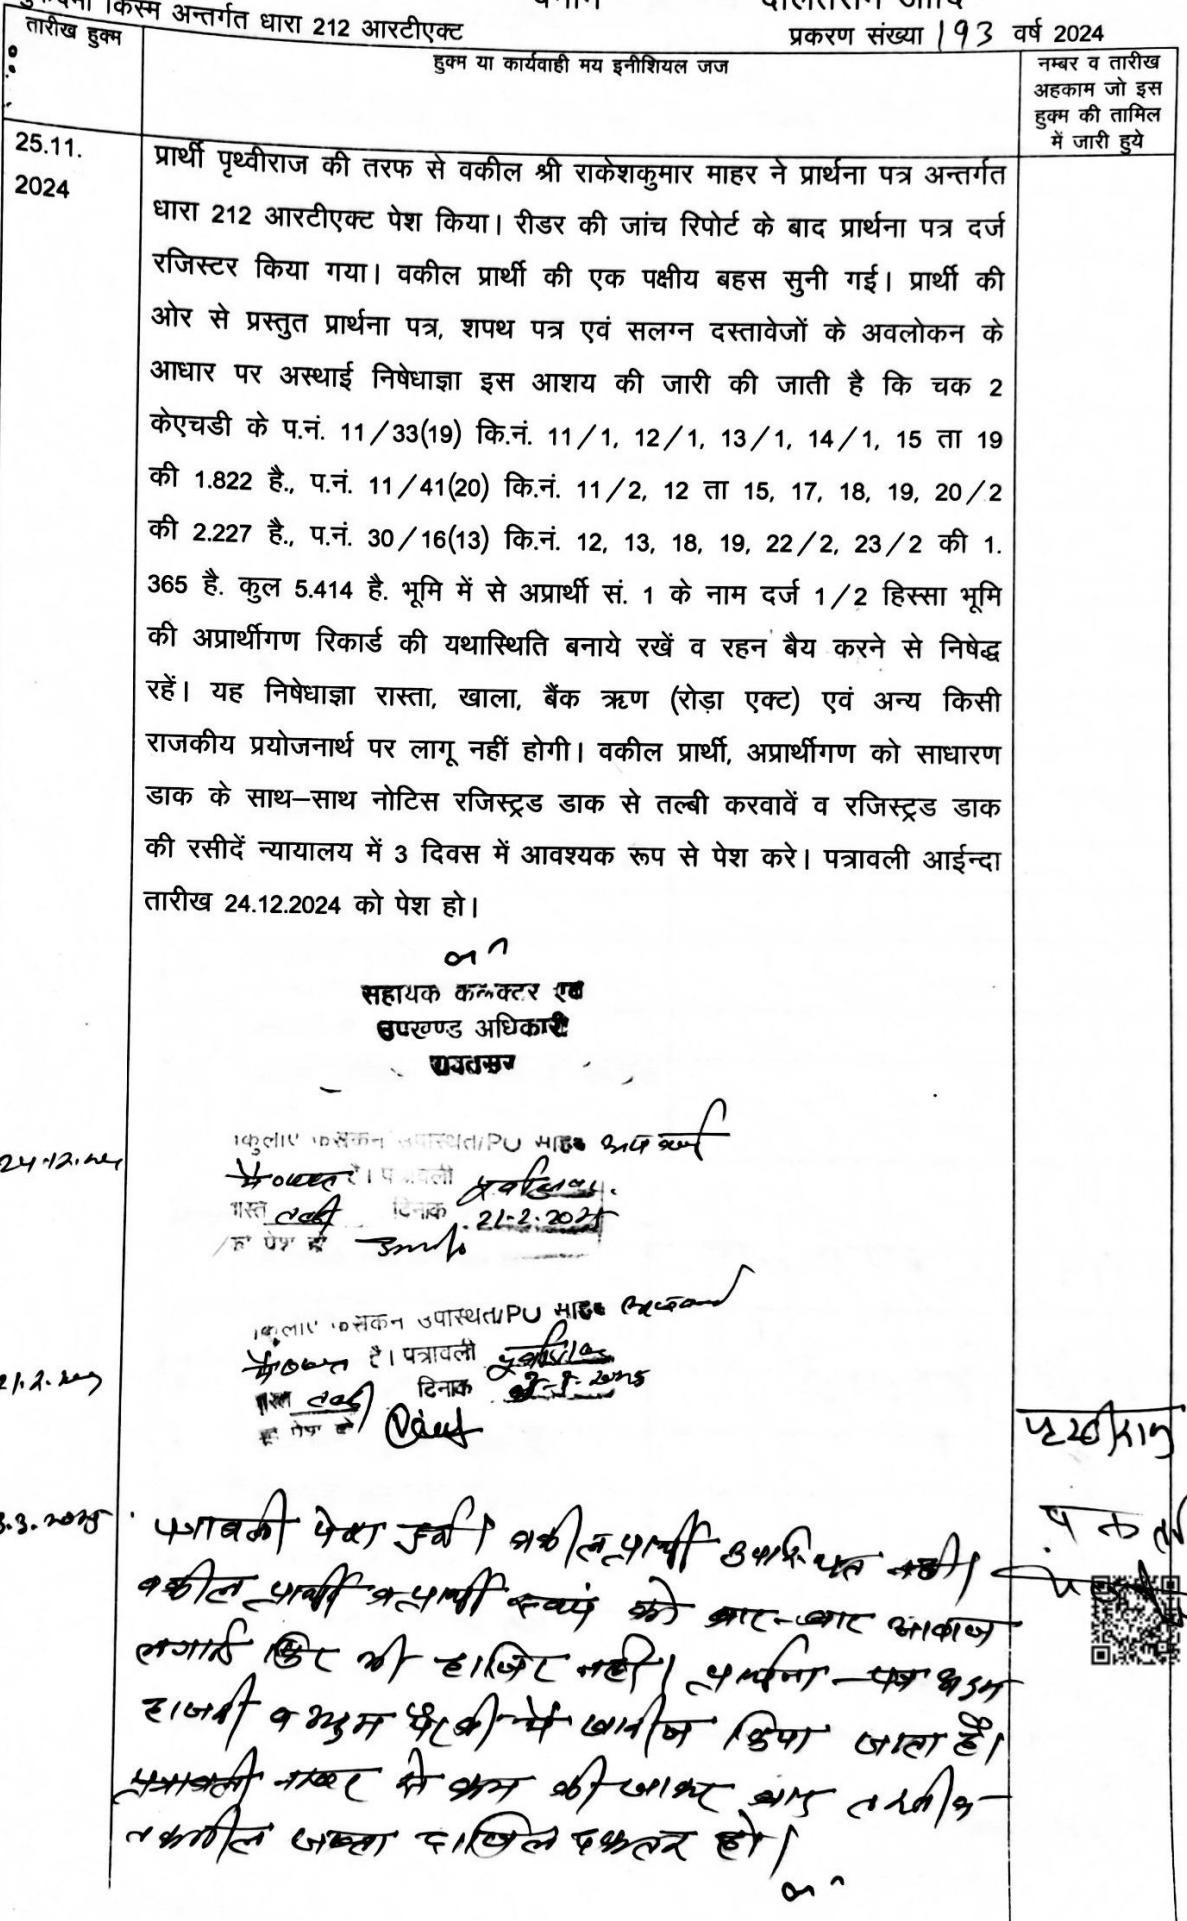 किस्म अन्तर्गत धारा 212 आरटीएक्ट
प्रकरण संख्या 193 वर्ष 2024
तारीख हुक्म
हुक्म या कार्यवाही मय इनीशियल जज
नम्बर व तारीख
अहकाम जो इस
हुक्म की तामिल
में जारी हुये
25.11.
2024
प्रार्थी पृथ्वीराज की तरफ से वकील श्री राकेशकुमार माहर ने प्रार्थना पत्र अन्तर्गत
धारा 212 आरटीएक्ट पेश किया। रीडर की जांच रिपोर्ट के बाद प्रार्थना पत्र दर्ज
रजिस्टर किया गया। वकील प्रार्थी की एक पक्षीय बहस सुनी गई। प्रार्थी की
ओर से प्रस्तुत प्रार्थना पत्र, शपथ पत्र एवं सलग्न दस्तावेजों के अवलोकन के
आधार पर अस्थाई निषेधाज्ञा इस आशय की जारी की जाती है कि चक 2
केएचडी के प.नं. 11/33(19) कि.नं. 11/1, 12/1, 13/1, 14/1, 15 ता 19
की 1.822 है., प.नं. 11/41(20) कि.नं. 11/2, 12 ता 15, 17, 18, 19, 20/2
की 2.227 है., प.नं. 30/16(13) कि.नं. 12, 13, 18, 19, 22/2, 23/2 की 1.
365 है. कुल 5.414 है. भूमि में से अप्रार्थी सं. 1 के नाम दर्ज 1/2 हिस्सा भूमि
की अप्रार्थीगण रिकार्ड की यथास्थिति बनाये रखें व रहन बैय करने से निषेद्ध
रहें। यह निषेधाज्ञा रास्ता, खाला, बैंक ऋण (रोड़ा एक्ट) एवं अन्य किसी
राजकीय प्रयोजनार्थ पर लागू नहीं होगी। वकील प्रार्थी, अप्रार्थीगण को साधारण
डाक के साथ–साथ नोटिस रजिस्ट्रड डाक से तल्बी करवावें व रजिस्ट्रड डाक
की रसीदें न्यायालय में 3 दिवस में आवश्यक रूप से पेश करे। पत्रावली आईन्दा
तारीख 24.12.2024 को पेश हो।
सहायक कलक्टर एवं
उपखण्ड अधिकारी
उपास्थित/PU साहब
है। पत्रावली
दिनांक 21-2-2025
उपास्थित/PU साहब
है। पत्रावली
दिनांक
पृथ्वीराज
पत्रावली पेश हुई। वकील प्रार्थी उपस्थित नही।
वकील प्रार्थी व प्रार्थी स्वयं को बार-बार आवाज
लगाई फिर भी हाजिर नही। प्रार्थना-पत्र अदम
हाजरी व अदम पैरवी में खारीज किया जाता है।
पत्रावली नम्बर से कम की जाकर बाद
तकमील दाखिल दफ्तर हो।